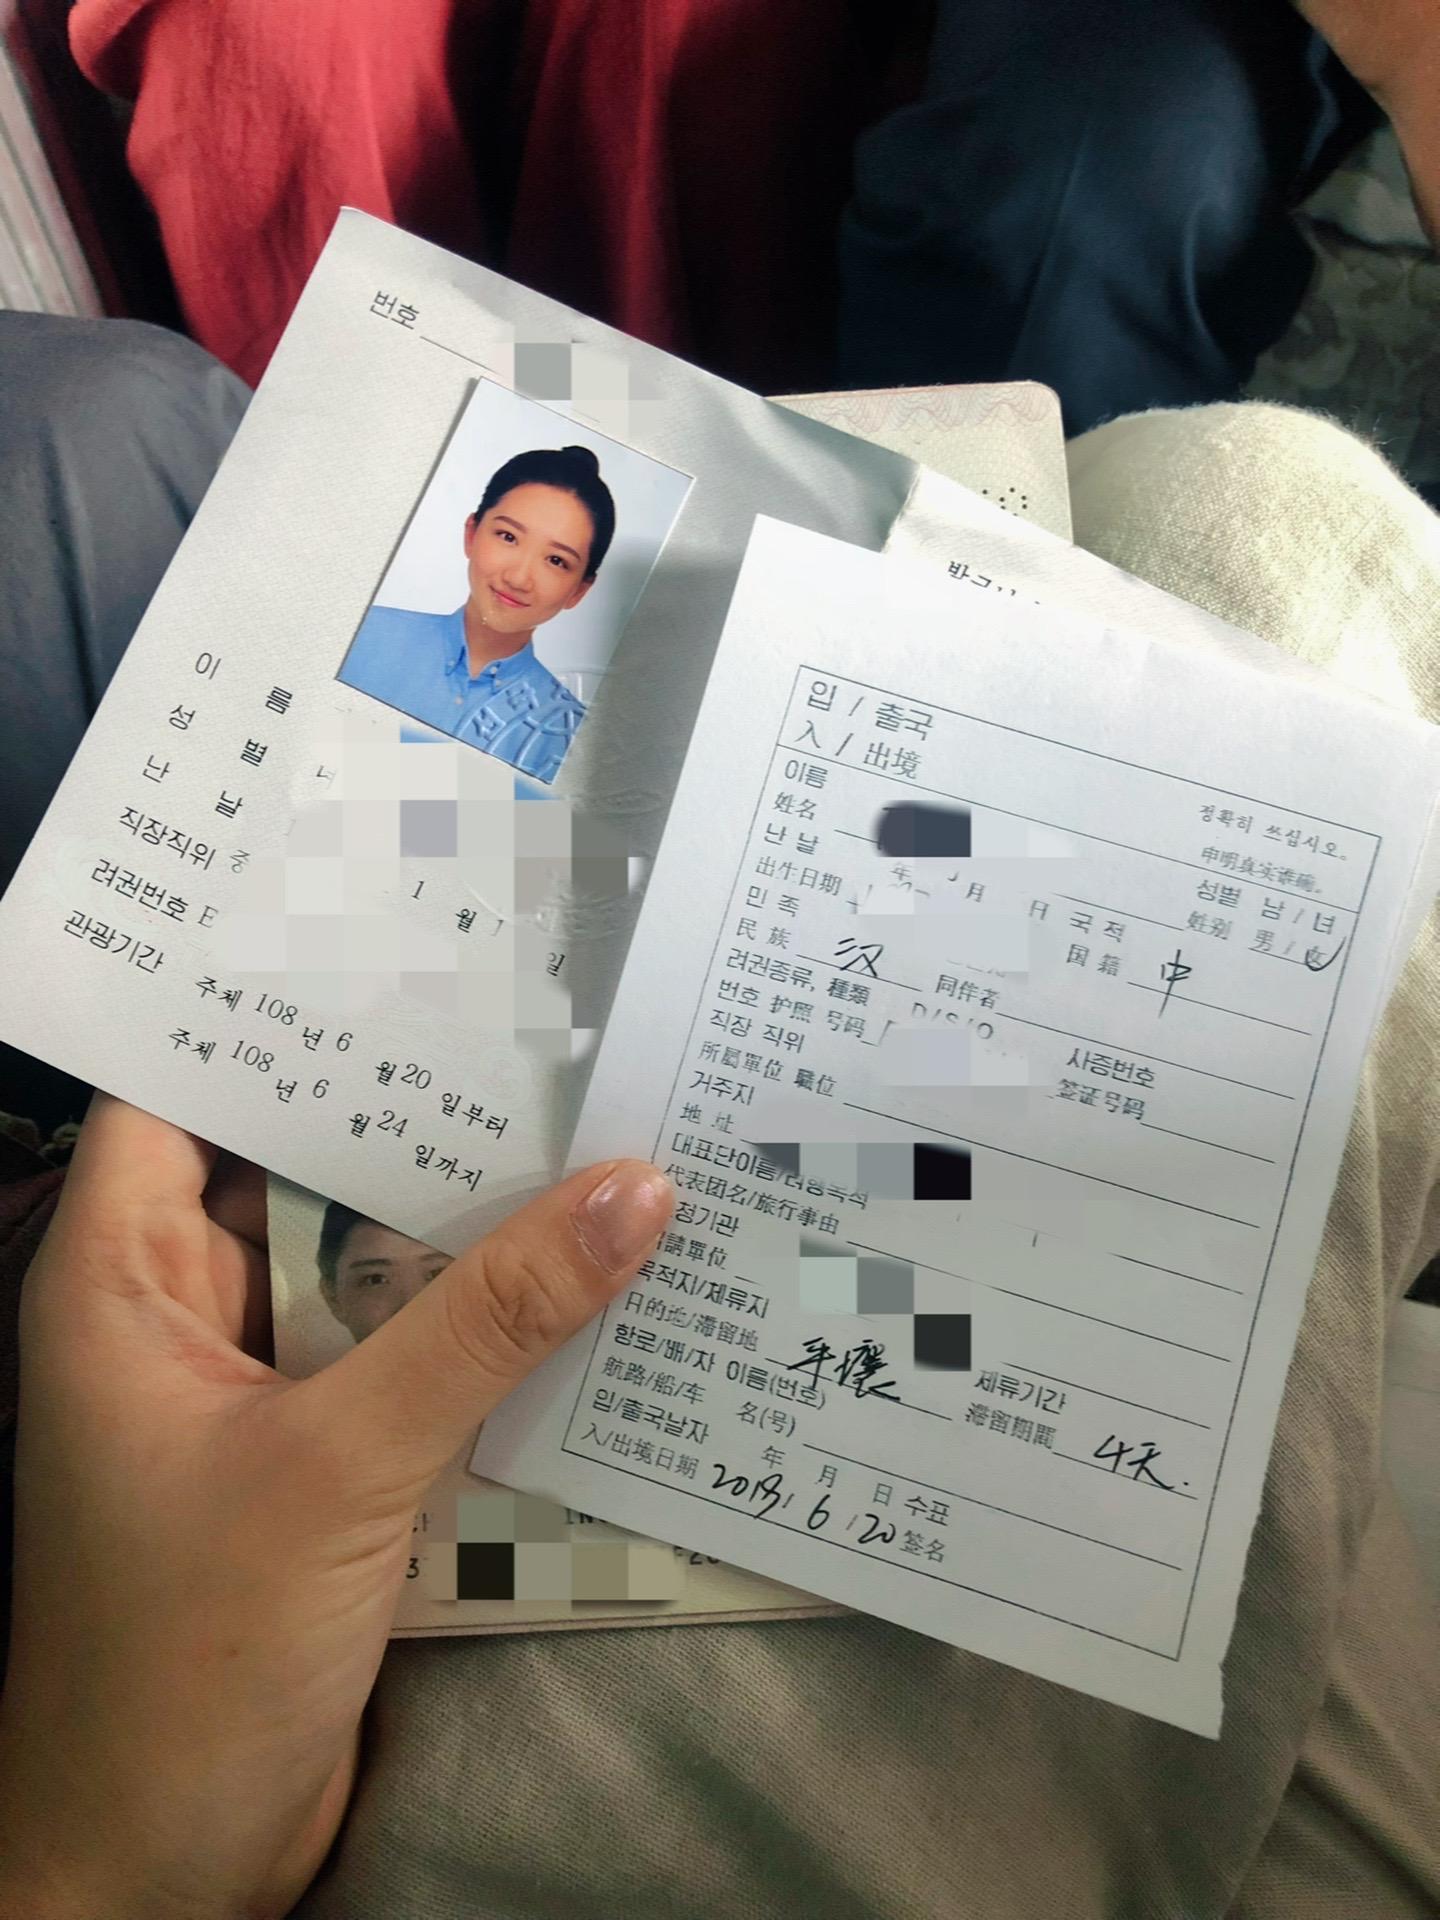 번호
이 름
성 별 녀
난 날
직장직위 중
려권번호 E
1 월 1 일
관광기간
주체 108 년 6 월 20 일부터
주체 108 년 6 월 24 일까지
입 / 출국
入 / 出境
정확히 쓰십시오。
申明真实准确。
이름
姓名
성별 남 / 녀
姓别 男 / 女
난 날
出生日期 年 月 日
민 족
民 族 汉
국 적
国 籍 中
同伴者
려권종류, 種類 D/S/O
번호 护照 号码
사증번호
签证号码
직장 직위
所屬單位 職位
거주지
地 址
대표단이름/려행목적
代表团名/旅行事由
정기관
請單位
목적지/체류지
目的地/滞留地 平壤
체류기간
滞留期間 4天.
항로/배/차 이름(번호)
航路/船/车 名(号)
입/출국날자 年 月 日
入/出境日期 2019/6/20
수표
签名